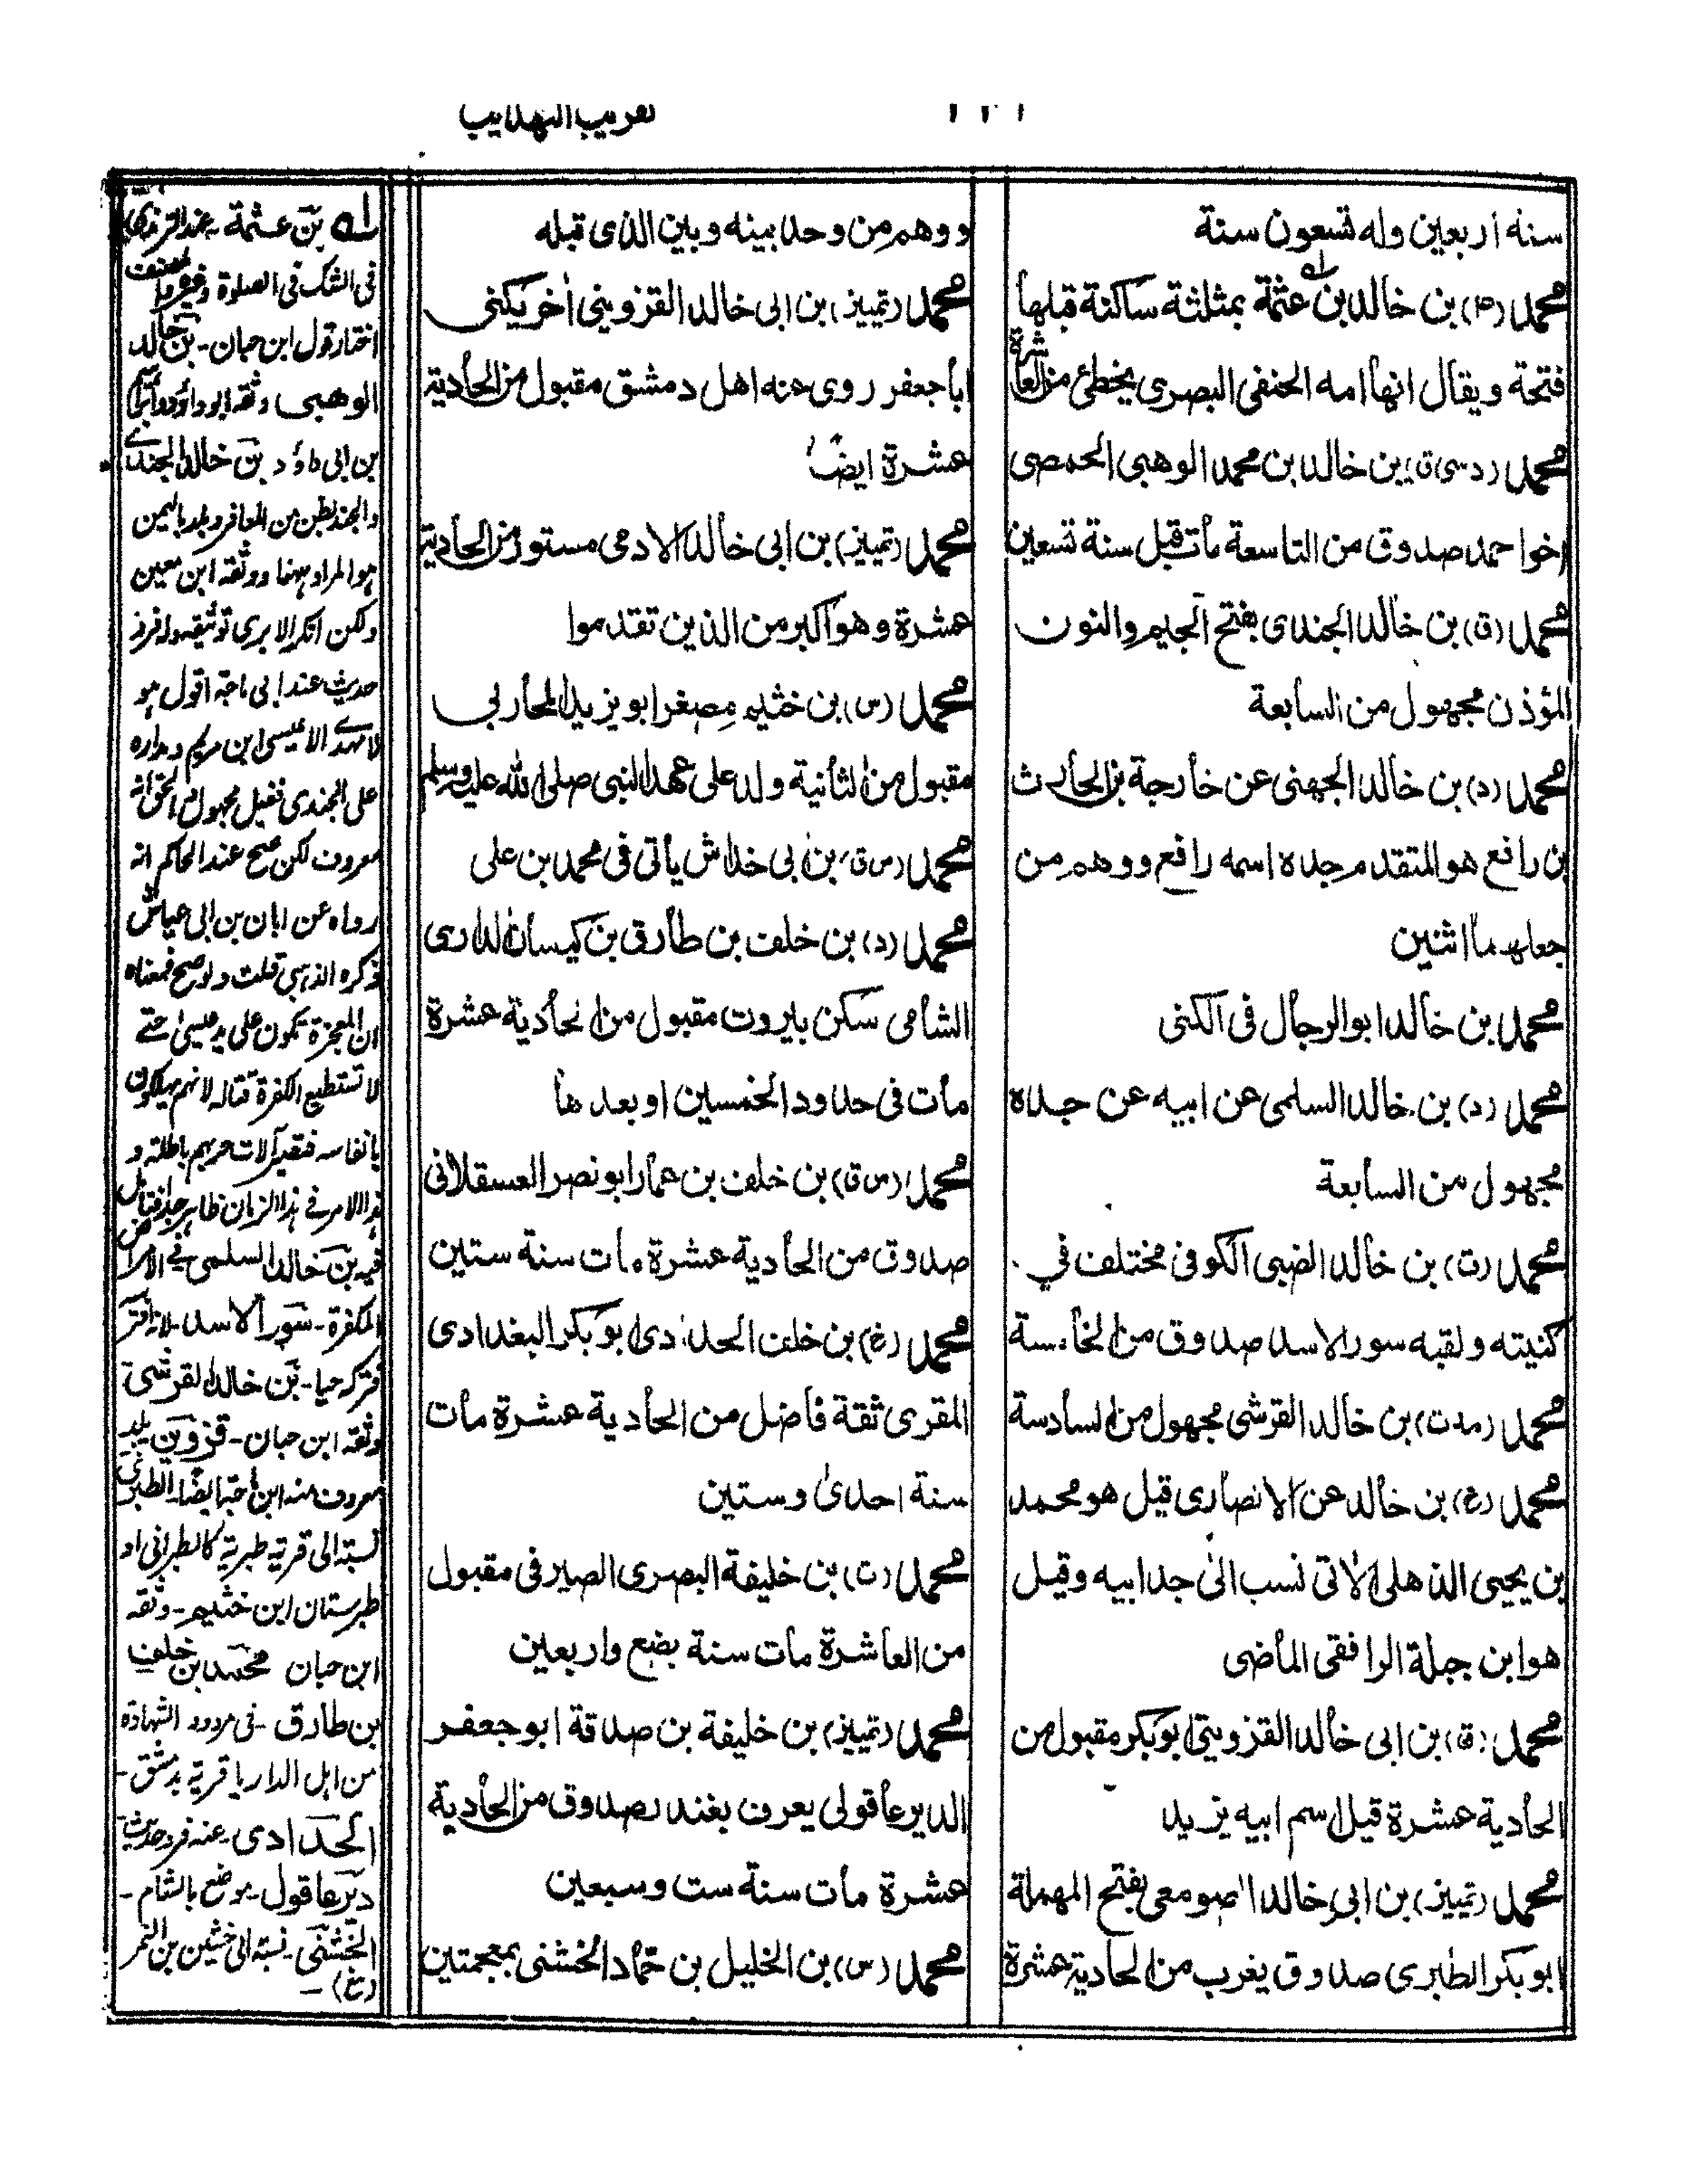 تقريب التهذيب
سنة اربعين وله تسعون سنة
محمد (م) بن خالد بن عثمة بمثلثة ساكنة قبلها
فتحة ويقال انها امه الحنفى البصرى يخطئ من العاشرة
محمد (د س ق) بن خالد بن محمد الوهبى الحمصى
اخو احمد صدوق من التاسعة مات قبل سنة تسعين
محمد (ق) بن خالد الجندى بفتح الجيم والنون
المؤذن مجهول من السابعة
محمد (د) بن خالد الجهنى عن خارجة بن الحارث
بن رافع هو المتقدم جده اسمه رافع ووهم من
جعلهما اثنين
محمد بن خالد ابو الرجال فى الكنى
محمد (د) بن خالد السلمى عن ابيه عن جده
مجهول من السابعة
محمد (ت) بن خالد الضبى الكوفى مختلف فى
كنيته ولقبه سور الاسد صدوق من الخامسة
محمد (مد ت) بن خالد القرشى مجهول من السادسة
محمد (خ) بن خالد عن الانصارى قيل هو محمد
بن يحيى الذهلى الاتى نسب الى جد ابيه وقيل
هو ابن جبلة الرافقى الماضى
محمد (ق) بن ابى خالد القزوينى ابو بكر مقبول من
الحادية عشرة قيل اسم ابيه يزيد
محمد (تمييز) بن ابى خالد الصومعى بفتح المهملة
ابو بكر الطبرى صدوق يغرب من الحادية عشرة
ووهم من وحد بينه وبين الذى قبله
محمد (تمييز) بن ابى خالد القزوينى اخر يكنى
ابا جعفر روى عنه اهل دمشق مقبول من الحادية
عشرة ايضا
محمد (تمييز) بن ابى خالد الادمى مستور من الحادية
عشرة وهو اكبر من الذين تقدموا
محمد (س) بن خثيم مصغر ابو يزيد المحاربى
مقبول من الثانية ولد على عهد النبى صلى الله عليه وسلم
محمد (س ق) بن ابى خداش ياتى فى محمد بن على
محمد (د) بن خلف بن طارق بن كيسان الدارى
الشامى سكن بيروت مقبول من الحادية عشرة
مات فى حدود الخمسين او بعدها
محمد (س ق) بن خلف بن عمار ابو نصر العسقلانى
صدوق من الحادية عشرة مات سنة ستين
محمد (خ) بن خلف الحدادى ابو بكر البغدادى
المقرى ثقة فاضل من الحادية عشرة مات
سنة احدى وستين
محمد (ت) بن خليفة البصرى الصيرفى مقبول
من العاشرة مات سنة بضع واربعين
محمد (تمييز) بن خليفة بن صدقة ابو جعفر
الديرعاقولى يعرف بغندر صدوق من الحادية
عشرة مات سنة ست وسبعين
محمد (س) بن الخليل بن حماد الخشنى بمعجمتين
له بن عثمة - عند الترمذى
فى الشك فى الصلوة وغيره والمصنف
اختار قول ابن حبان - بن خالد
الوهبى وثقه ابو داؤد
بن ابى داؤد بن خالد الجندى
والجند بطن من المعافر وبلد باليمن
هو المراد ههنا ووثقه ابن معين
ولكن انكر الابرى توثيقه وله فرد
حديث عند ابى ماجة اقول هو
لا مهدى الا عيسى ابن مريم ومداره
على الجندى فقيل مجهول والحق انه
معروف لكن صح عند الحاكم انه
رواه عن ابان بن ابى عياش
ذكره الذهبى قلت ولو صح فمعناه
ان المعجزة تكون على يد عيسى حتى
لا تستطيع الكفرة قتاله لانهم يهلكون
بانفاسه فتصير آلات حربهم باطلة و
هذا الامر فى هذا الزمان ظاهر جدا فتامل
فيه بن خالد السلمى فى الامراض
المكفرة - سور الاسد - لانه افترسه
فتركه حيا - بن خالد القرشى
وثقه ابن حبان - قزوين بلد
معروف منه ابن ماجة ايضا - الطبرى
نسبة الى قرية طبرية كالطبرانى او
طبرستان ابن خثيم - وثقه
ابن حبان محمد بن خلف
بن طارق - فى مردود الشهادة
من اهل الداريا قرية بدمشق -
الحدادى - عنه فرد حديث
ديرعاقول - موضع بالشام -
الخشنى - نسبة الى خشين بن النمر
(مغ) -